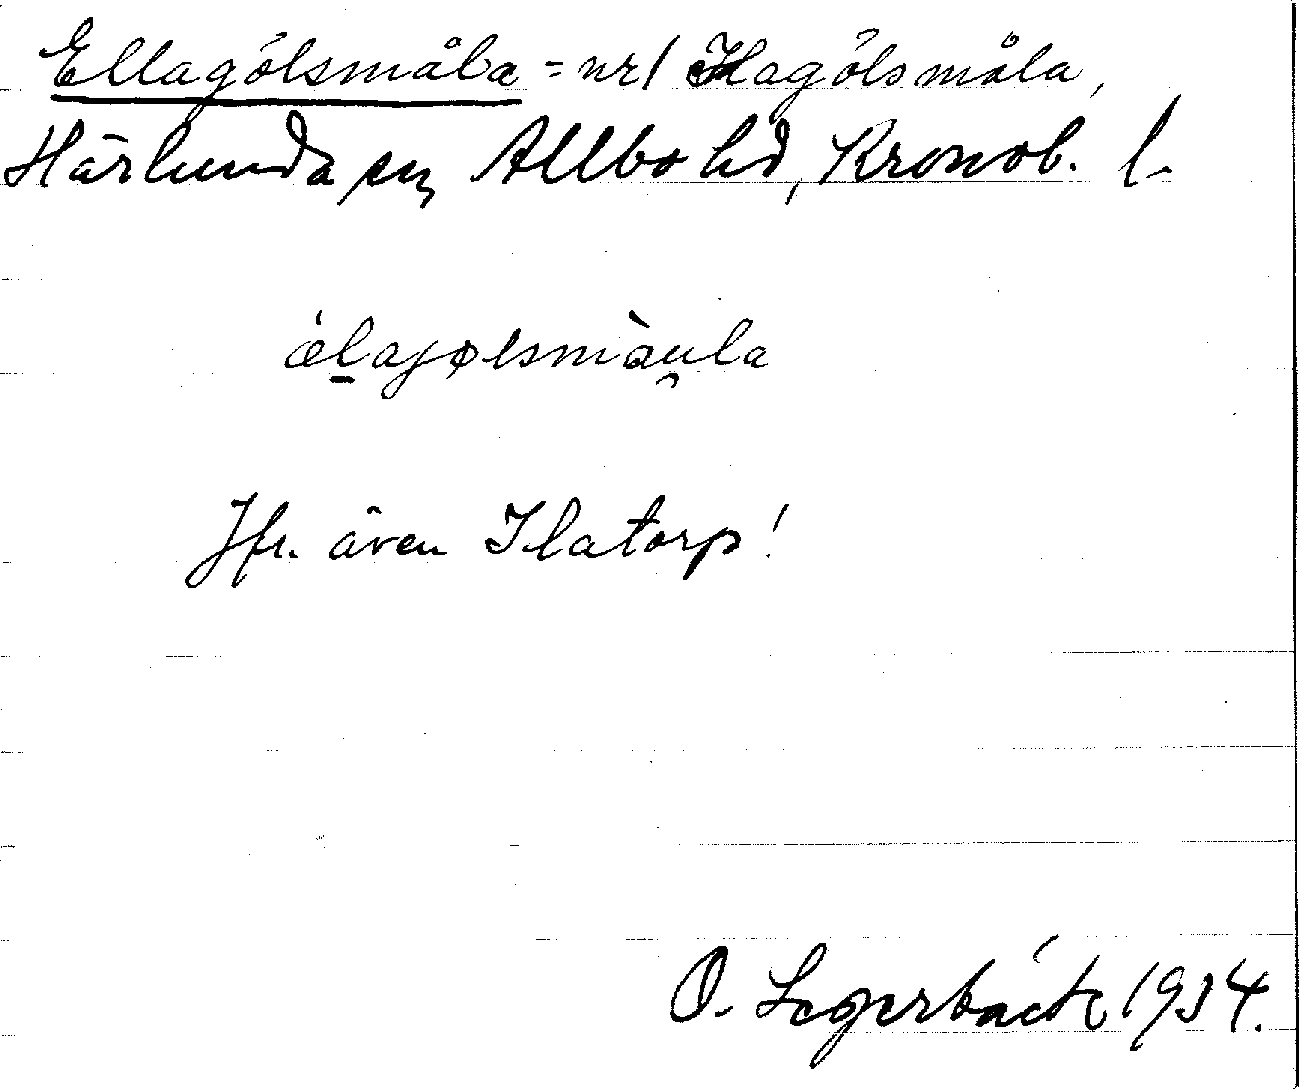 Ellagölsmåla = nr 1 Hagölsmåla,
Härlunda sn, Allbo hd, Kronob. l.
ælajølsmàu̯la
Jfr. även Ilatorp!
O. Legerbäck 1934.